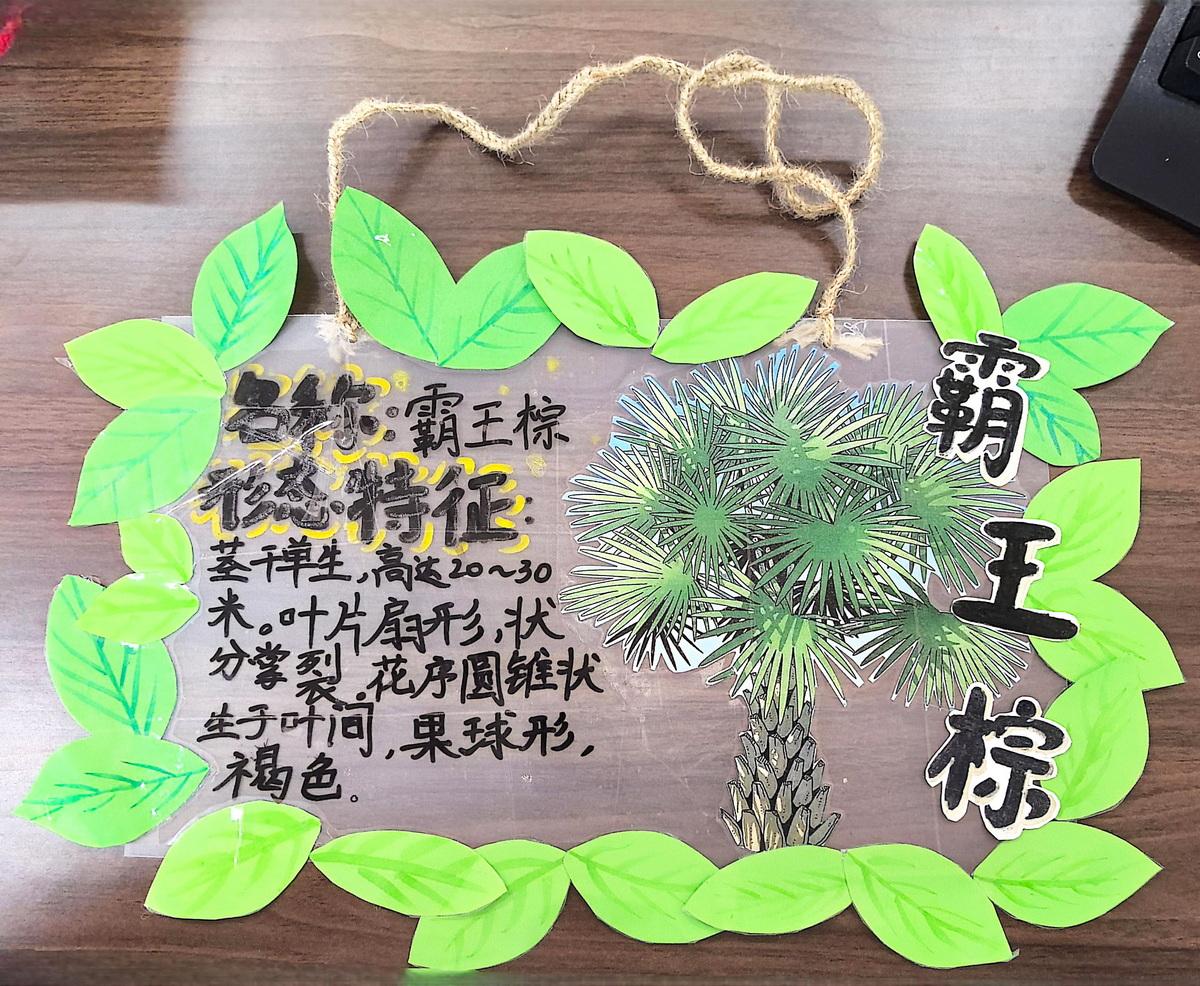 名称:霸王棕
形态特征:
茎干单生,高达20~30
米。叶片扇形,状
分掌裂。花序圆锥状
生于叶间,果球形,
褐色。
霸王棕